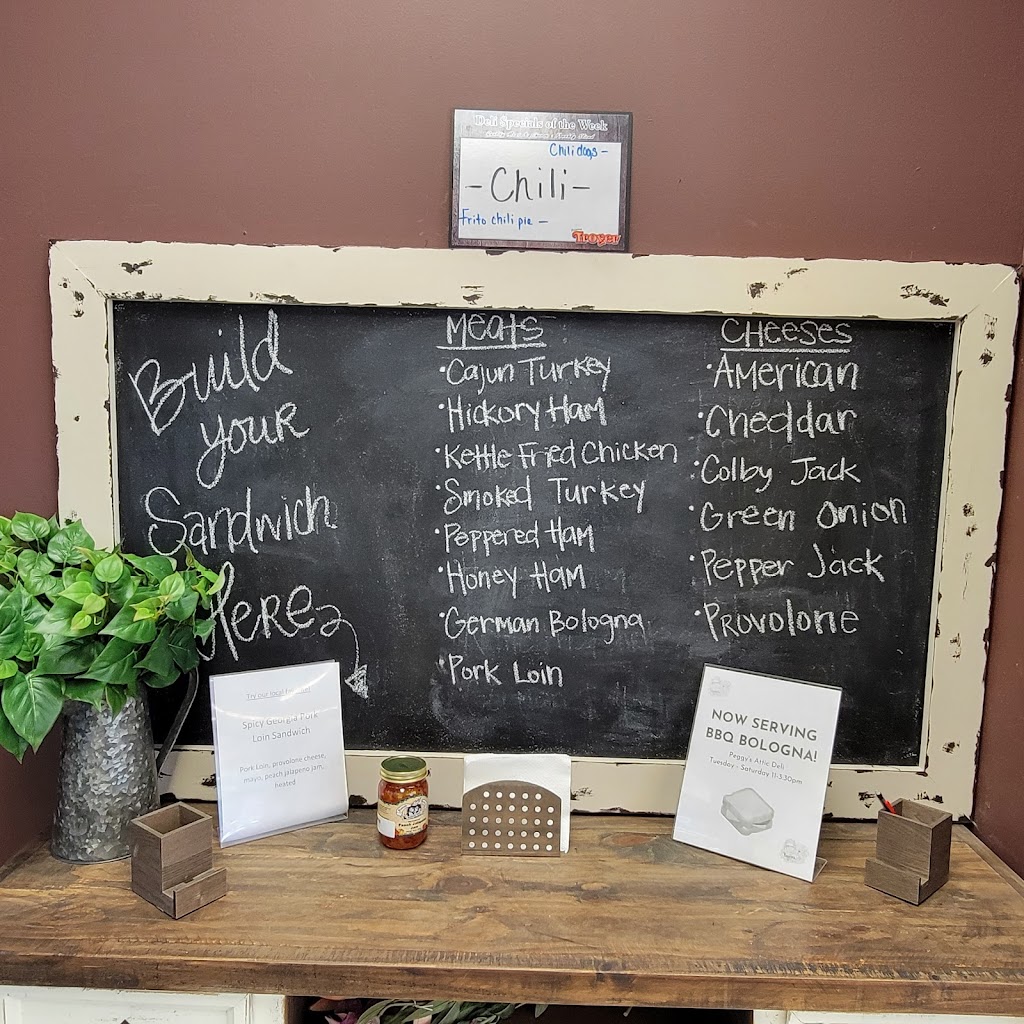 Deli Specials of the Week
Chilidogs -
- Chili -
Frito chili pie -
Troyer
Build
your
Sandwich
Here
Meats
• Cajun Turkey
• Hickory Ham
• Kettle Fried Chicken
• Smoked Turkey
• Peppered Ham
• Honey Ham
• German Bologna
• Pork Loin
Cheeses
• American
• Cheddar
• Colby Jack
• Green Onion
• Pepper Jack
• Provolone
Try our local favorite!
Spicy Georgia Pork
Loin Sandwich
Pork Loin, provolone cheese,
mayo, peach jalapeno jam,
heated
NOW SERVING
BBQ BOLOGNA!
Peggy's Attic Deli
Tuesday - Saturday 11-3:30pm